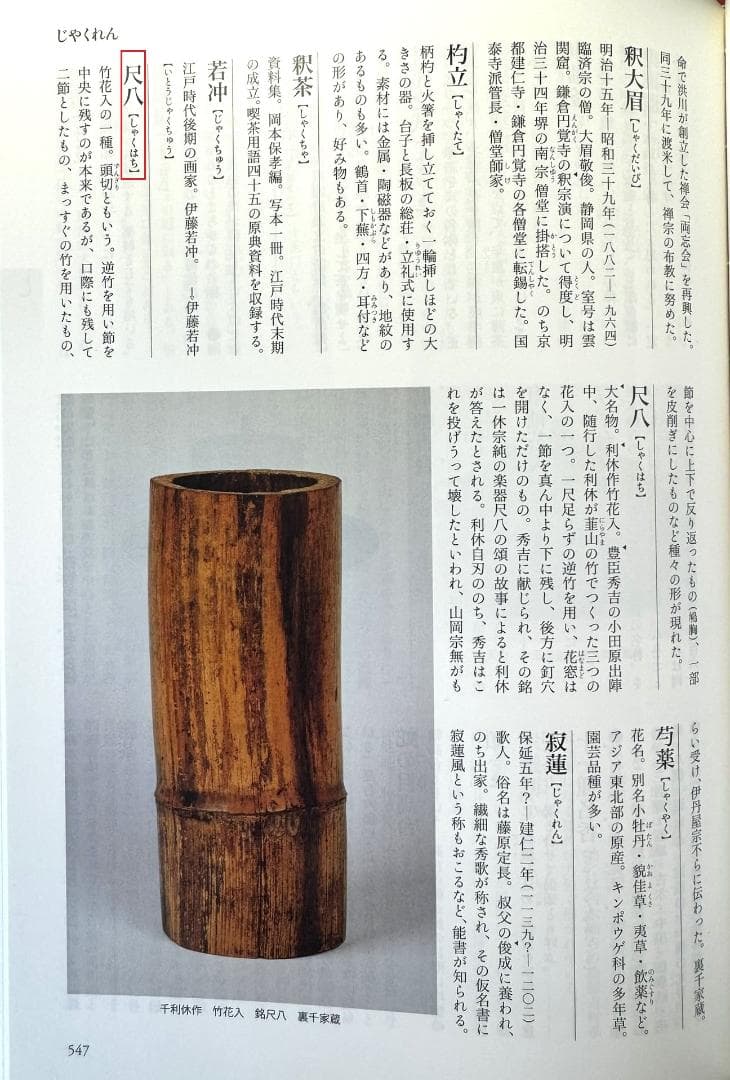 じやくれん
命で洪川が創立した禅会「両忘会」を再興した。
同三十九年に渡米して、禅宗の布教に努めた。
釈大眉【しゃくだいび】
明治十五年―昭和三十九年(一八八二―一九六四)
臨済宗の僧。大眉敬俊。静岡県の人。室号は雲
関窟。鎌倉円覚寺の釈宗演について得度し、明
治三十四年堺の南宗僧堂に掛搭した。のち京
都建仁寺・鎌倉円覚寺の各僧堂に転錫した。国
泰寺派管長・僧堂師家。
杓立【しゃくたて】
柄杓と火箸を挿し立てておく一輪挿しほどの大
きさの器。台子と長板の総荘・立礼式に使用す
る。素材には金属・陶磁器などがあり、地紋の
あるものも多い。鶴首・下蕪・四方・耳付など
の形があり、好み物もある。
釈茶【しゃくちゃ】
資料集。岡本保孝編。写本一冊。江戸時代末期
の成立。喫茶用語四十五の原典資料を収録する。
若冲【じゃくちゅう】
江戸時代後期の画家。伊藤若冲。→伊藤若冲
【いとうじゃくちゅう】
尺八【しゃくはち】
竹花入の一種。頭切ともいう。逆竹を用い節を
中央に残すのが本来であるが、口際にも残して
二節としたもの、まっすぐの竹を用いたもの、
節を中心に上下で反り返ったもの(鳩胸)、一部
を皮削ぎにしたものなど種々の形が現れた。
尺八【しゃくはち】
大名物。利休作竹花入。豊臣秀吉の小田原出陣
中、随行した利休が韮山の竹でつくった三つの
花入の一つ。一尺足らずの逆竹を用い、花窓は
なく、一節を真ん中より下に残し、後方に釘穴
を開けただけのもの。秀吉に献じられ、その銘
は一休宗純の楽器尺八の頌の故事によると利休
が答えたとされる。利休自刃ののち、秀吉はこ
れを投げうって壊したといわれ、山岡宗無がも
らい受け、伊丹屋宗不らに伝わった。裏千家蔵。
芍薬【しゃくやく】
花名。別名小牡丹・貌佳草・夷草・飲薬など。
アジア東北部の原産。キンポウゲ科の多年草。
園芸品種が多い。
寂蓮【じゃくれん】
保延五年?―建仁二年(一一三九?―一二〇二)
歌人。俗名は藤原定長。叔父の俊成に養われ、
のち出家。繊細な秀歌が称され、その仮名書に
寂蓮風という称もおこるなど、能書が知られる。
千利休作 竹花入 銘尺八 裏千家蔵
547